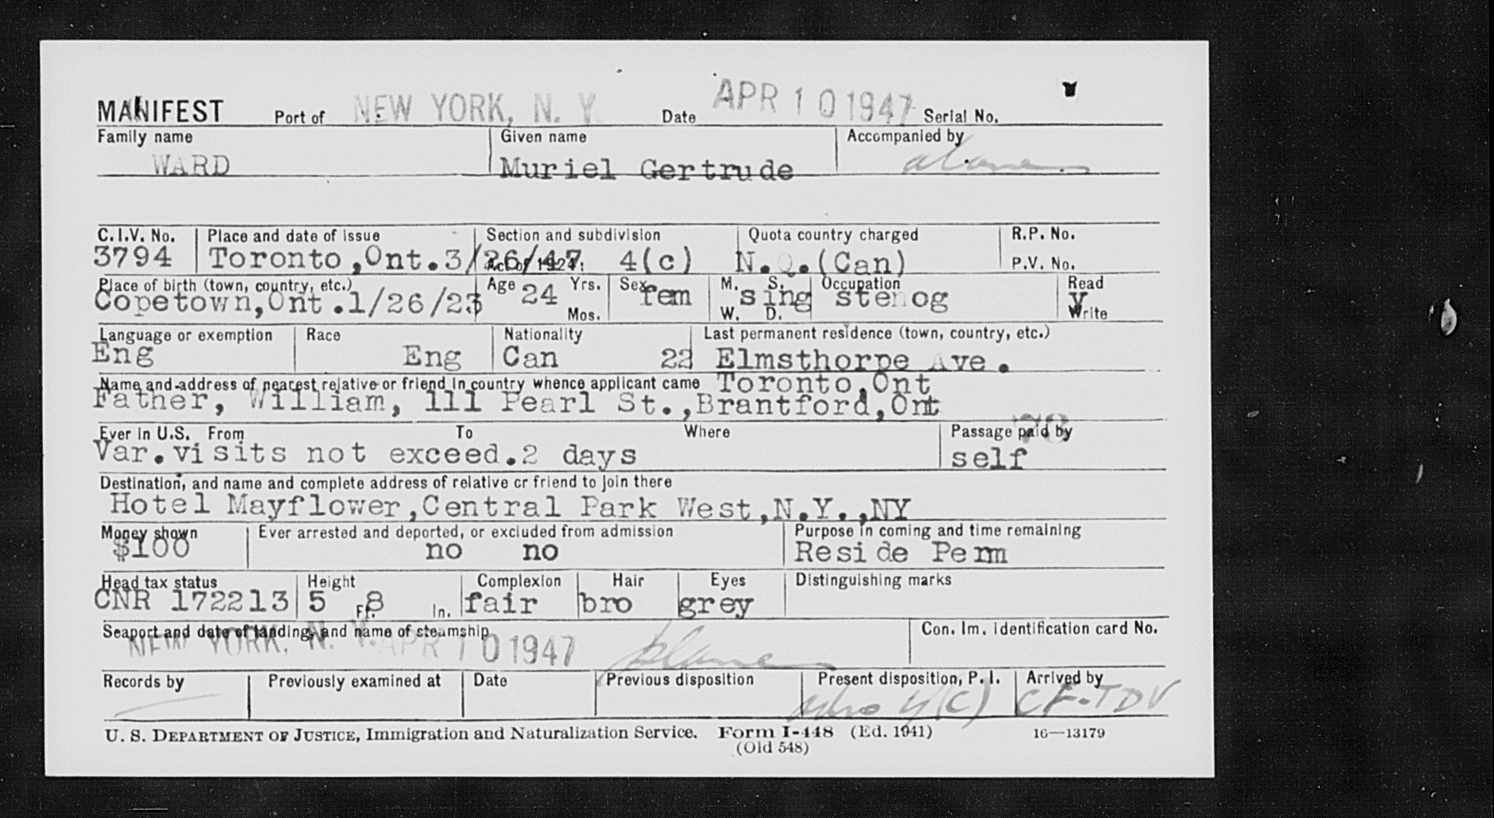 MANIFEST Port of NEW YORK, N. Y. Date APR 10 1947 Serial No.
Family name Given name Accompanied by
WARD Muriel Gertrude alone
C.I.V. No. Place and date of issue Section and subdivision Quota country charged R.P. No.
3794 Toronto,Ont.3/26/47 Act of 1924: 4(c) N.Q.(Can) P.V. No.
Place of birth (town, country, etc.) Age Yrs. Sex M. S. Occupation Read
Copetown,Ont.1/26/23 24 fem sing stenog y
Mos. W. D. Write
Language or exemption Race Nationality Last permanent residence (town, country, etc.)
Eng Eng Can 22 Elmsthorpe Ave.
Name and address of nearest relative or friend in country whence applicant came Toronto,Ont
Father, William, 111 Pearl St.,Brantford,Ont
Ever in U.S. From To Where Passage paid by
Var.visits not exceed.2 days self
Destination, and name and complete address of relative or friend to join there
Hotel Mayflower,Central Park West,N.Y.,NY
Money shown Ever arrested and deported, or excluded from admission Purpose in coming and time remaining
$100 no no Reside Perm
Head tax status Height Complexion Hair Eyes Distinguishing marks
CNR 172213 5 Ft. 8 In. fair bro grey
Seaport and date of landing, and name of steamship Con. Im. identification card No.
NEW YORK, N. Y. APR 10 1947 plane
Records by Previously examined at Date Previous disposition Present disposition, P. I. Arrived by
4(c) CF-TDV
U. S. DEPARTMENT OF JUSTICE, Immigration and Naturalization Service. Form I-448 (Ed. 1941) 16—13179
(Old 548)